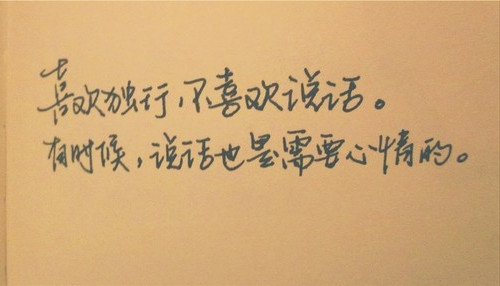 喜欢独行，不喜欢说话。
有时候，说话也是需要心情的。